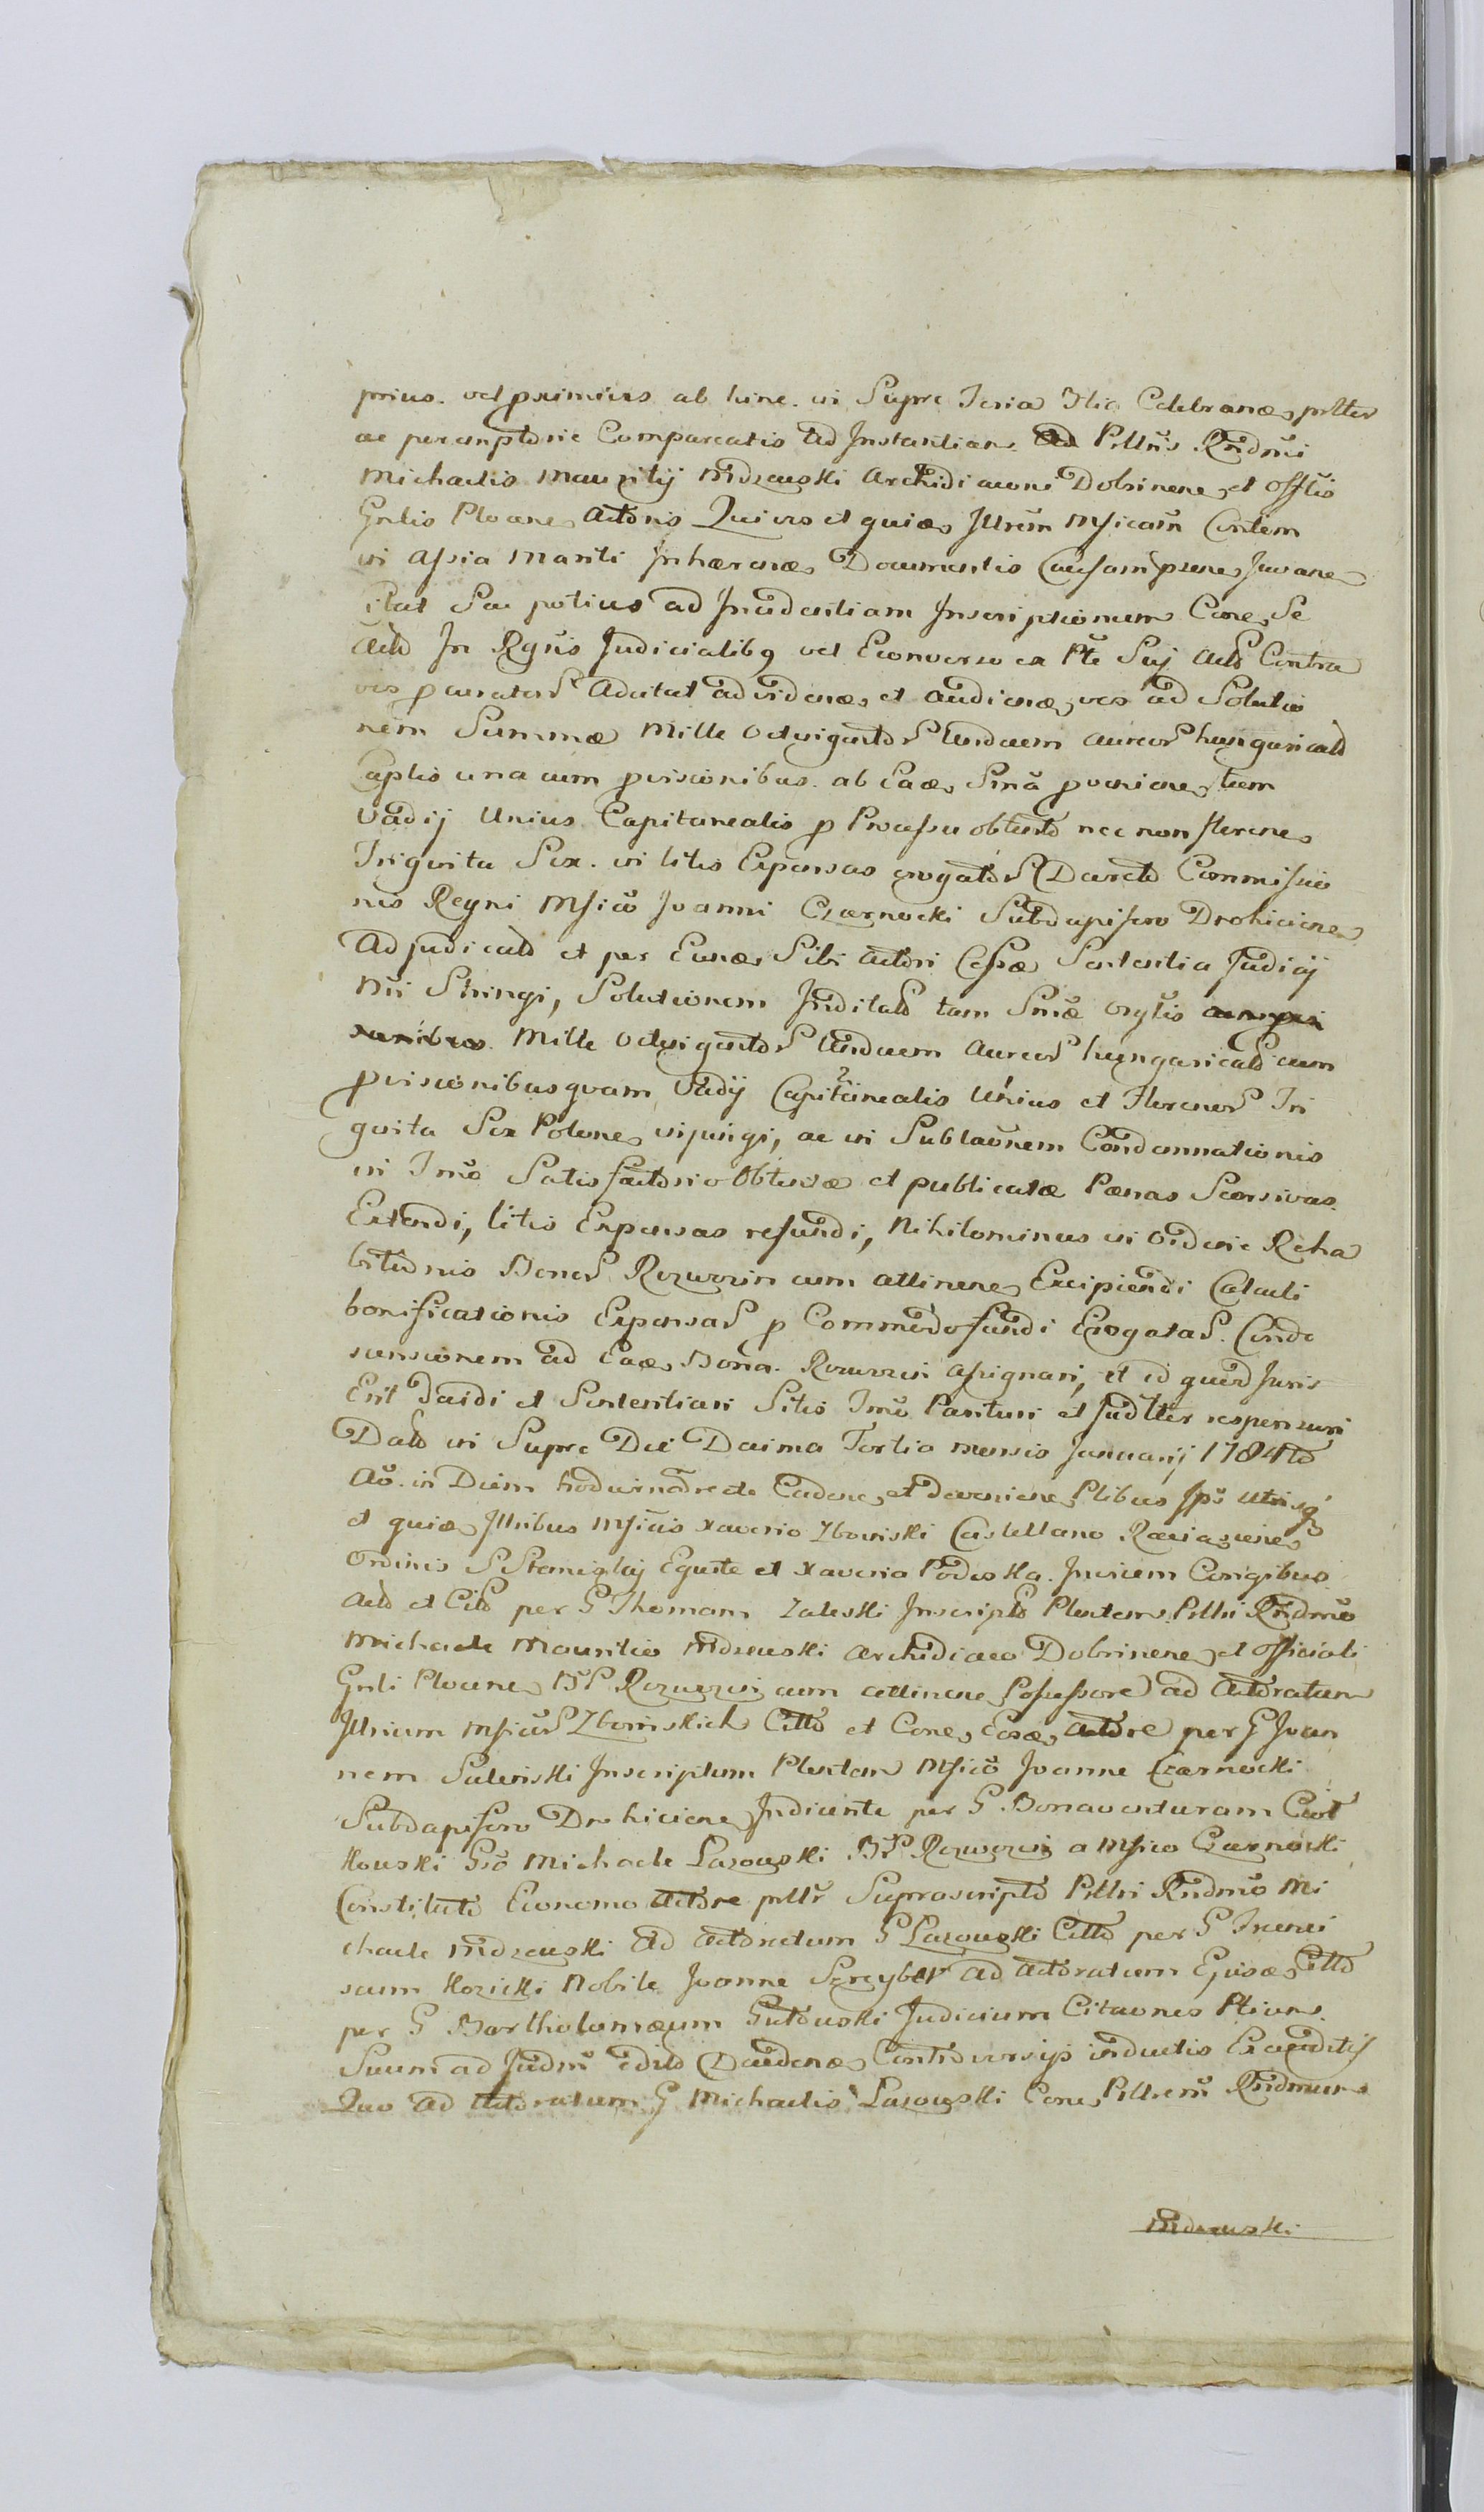 prius. vel proximius ab hinc. in Supre Feria Ilia Celebrane, prltter
ac peremptorie Compareatis ad Instantiam Prllris Rndmi
Michaelis Mauritij Mdzewski Archidiaconi Dobrinene, et Offlis
Gnlis Plocene, Actoris Qui vos et quiae, Illrem Mficam Contem
in Assia Mariti Inhaerenae, Documentis Causam prnne, Juvane,
Citat Seu potius ad Incidentiam Inscriptionum Cone, Se
Acto In Regris Judicialibq vel Econverso ex Pte Suj Acto Contra
vos parator Adcitat ad videnae, et audienae, vos ad Solutio
nem Summae Mille Octvigintor Undecim aureor hungarical
Captis una cum provisionibus. ab Eade, Sma provenine, tum
Vadij Unius Capitanealis p Processu obtento nec non florene,
Triginta Sex. in litis Expensas erogator Decreto Commissio
nis Regni Mfico Joanni Czarnocki Subdapifero Drohicine,
Adjudicato et per Eunde, Sibi Actori Cessae Sententia Judicij
Nri Stringi, Solutionem Inditato tam Smae Orgtis
Mille Octvigintor Undecim Aureor hungarical cum
provisionibus quam Vadij Capitanealis Unius et Florenor Tri
ginta Sex Polone, injungi, ac in Sublaonem Condemnationis
in Tmo Satisfactorio Obtentae et publicatae Paenas Seorsivas.
Extendi, litis Expensas refundi, Nihilominus in Ordine Reha
bitionis Bonor Rozwozin cum attinene, Excipiendi Calculi
bonificationis Expensar p Commodo fundi Erogatar. Conde
scensionem ad Eade, Bona. Rozwozin assignari, et id quod Juris
Erit Decidi et Sententiari Sitis Tmo Parituri et Judltter responsuri
Dato in Supre Die Decima Tertia mensis Januarij 1784to
Ao. in Diem hodiernam recte Cadene, et devenine, Ptibus Ips Utrisq
et quiae, Illribus Mficis Xaverio Zboinski Castellano Raciazene,
Ordinis S Stanislaj Equite et Xaveria Podoska. Invicem Conjugibus
Acto et Cito per G Thomam Zaleski Inscripto Plentem, Prllri Rndmo
Michaele Mauritio Mdzewski Archidiaco Dobrinene, et Officiali
Gnli Plocene, BP Rozwozin cum attinene Possessore ad Actoratum
Illrium Mficor Zboinskich Citto et Cone, Eosde, Actore per G Joan
nem Suleriski Inscriptum Plentem Mfico Joanne Czarnocki
Subdapifero Drohicine, Indicente per G Bonaventuram Ciot
kowski Gso Michaele Lasowski BP Rozwozin a Mfico Czarnocki
Constituto Economo Actore prllr Suprascripto Prllri Rndmo Mi
chaele Mdzewski Ad Actoratum G Lasowski Citto per G Franci
scum Kozicki Nobile Joanne Szreyber ad Actoratum Ejusde, Citto
per G Bartholomaeum Gutowski Judicium Citaones Ptium
Suum ad Judm edito Dandenae, Controversijs inductis Exauditis
Quo ad Actoratum G Michaelis Lasowski Cone, Prllrem Rndmum
Mdzewski